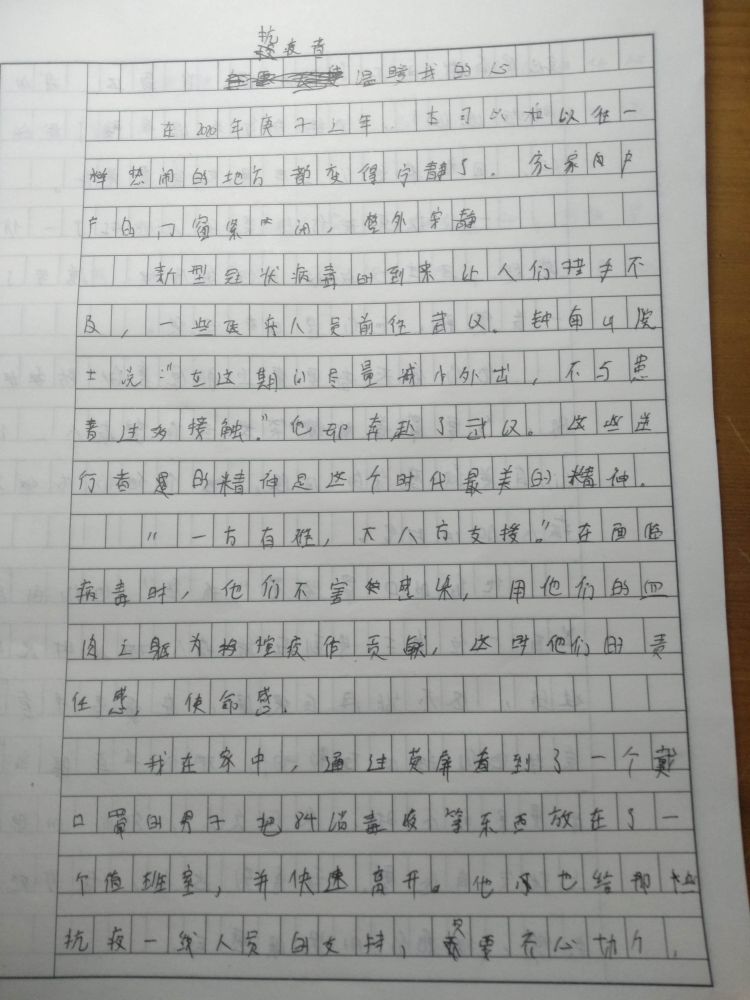 抗疫者
温暖我的心
在2020年庚子上年，古可以和以往一
样热闹的地方都变得宁静了。家家户户
户的门窗紧闭，整外宁静
新型冠状病毒的到来让人们措手不
及，一些医疗人员前往武汉。钟南山院
士说："在这期间尽量减少外出，不与患
者过多接触。"他却奔赴了武汉。这些逆
行者的精神是这个时代最美的精神。
"一方有难，八方支援。"在面临
病毒时，他们不害怕感染，用他们的血
肉之躯为抗疫作贡献，这时他们的责
任感，使命感。
我在家中，通过荧屏看到了一个戴
口罩的男子把84消毒液等东西放在了一
个值班室，并快速离开。他也给那些
抗疫一线人员的支持，只要齐心协力，